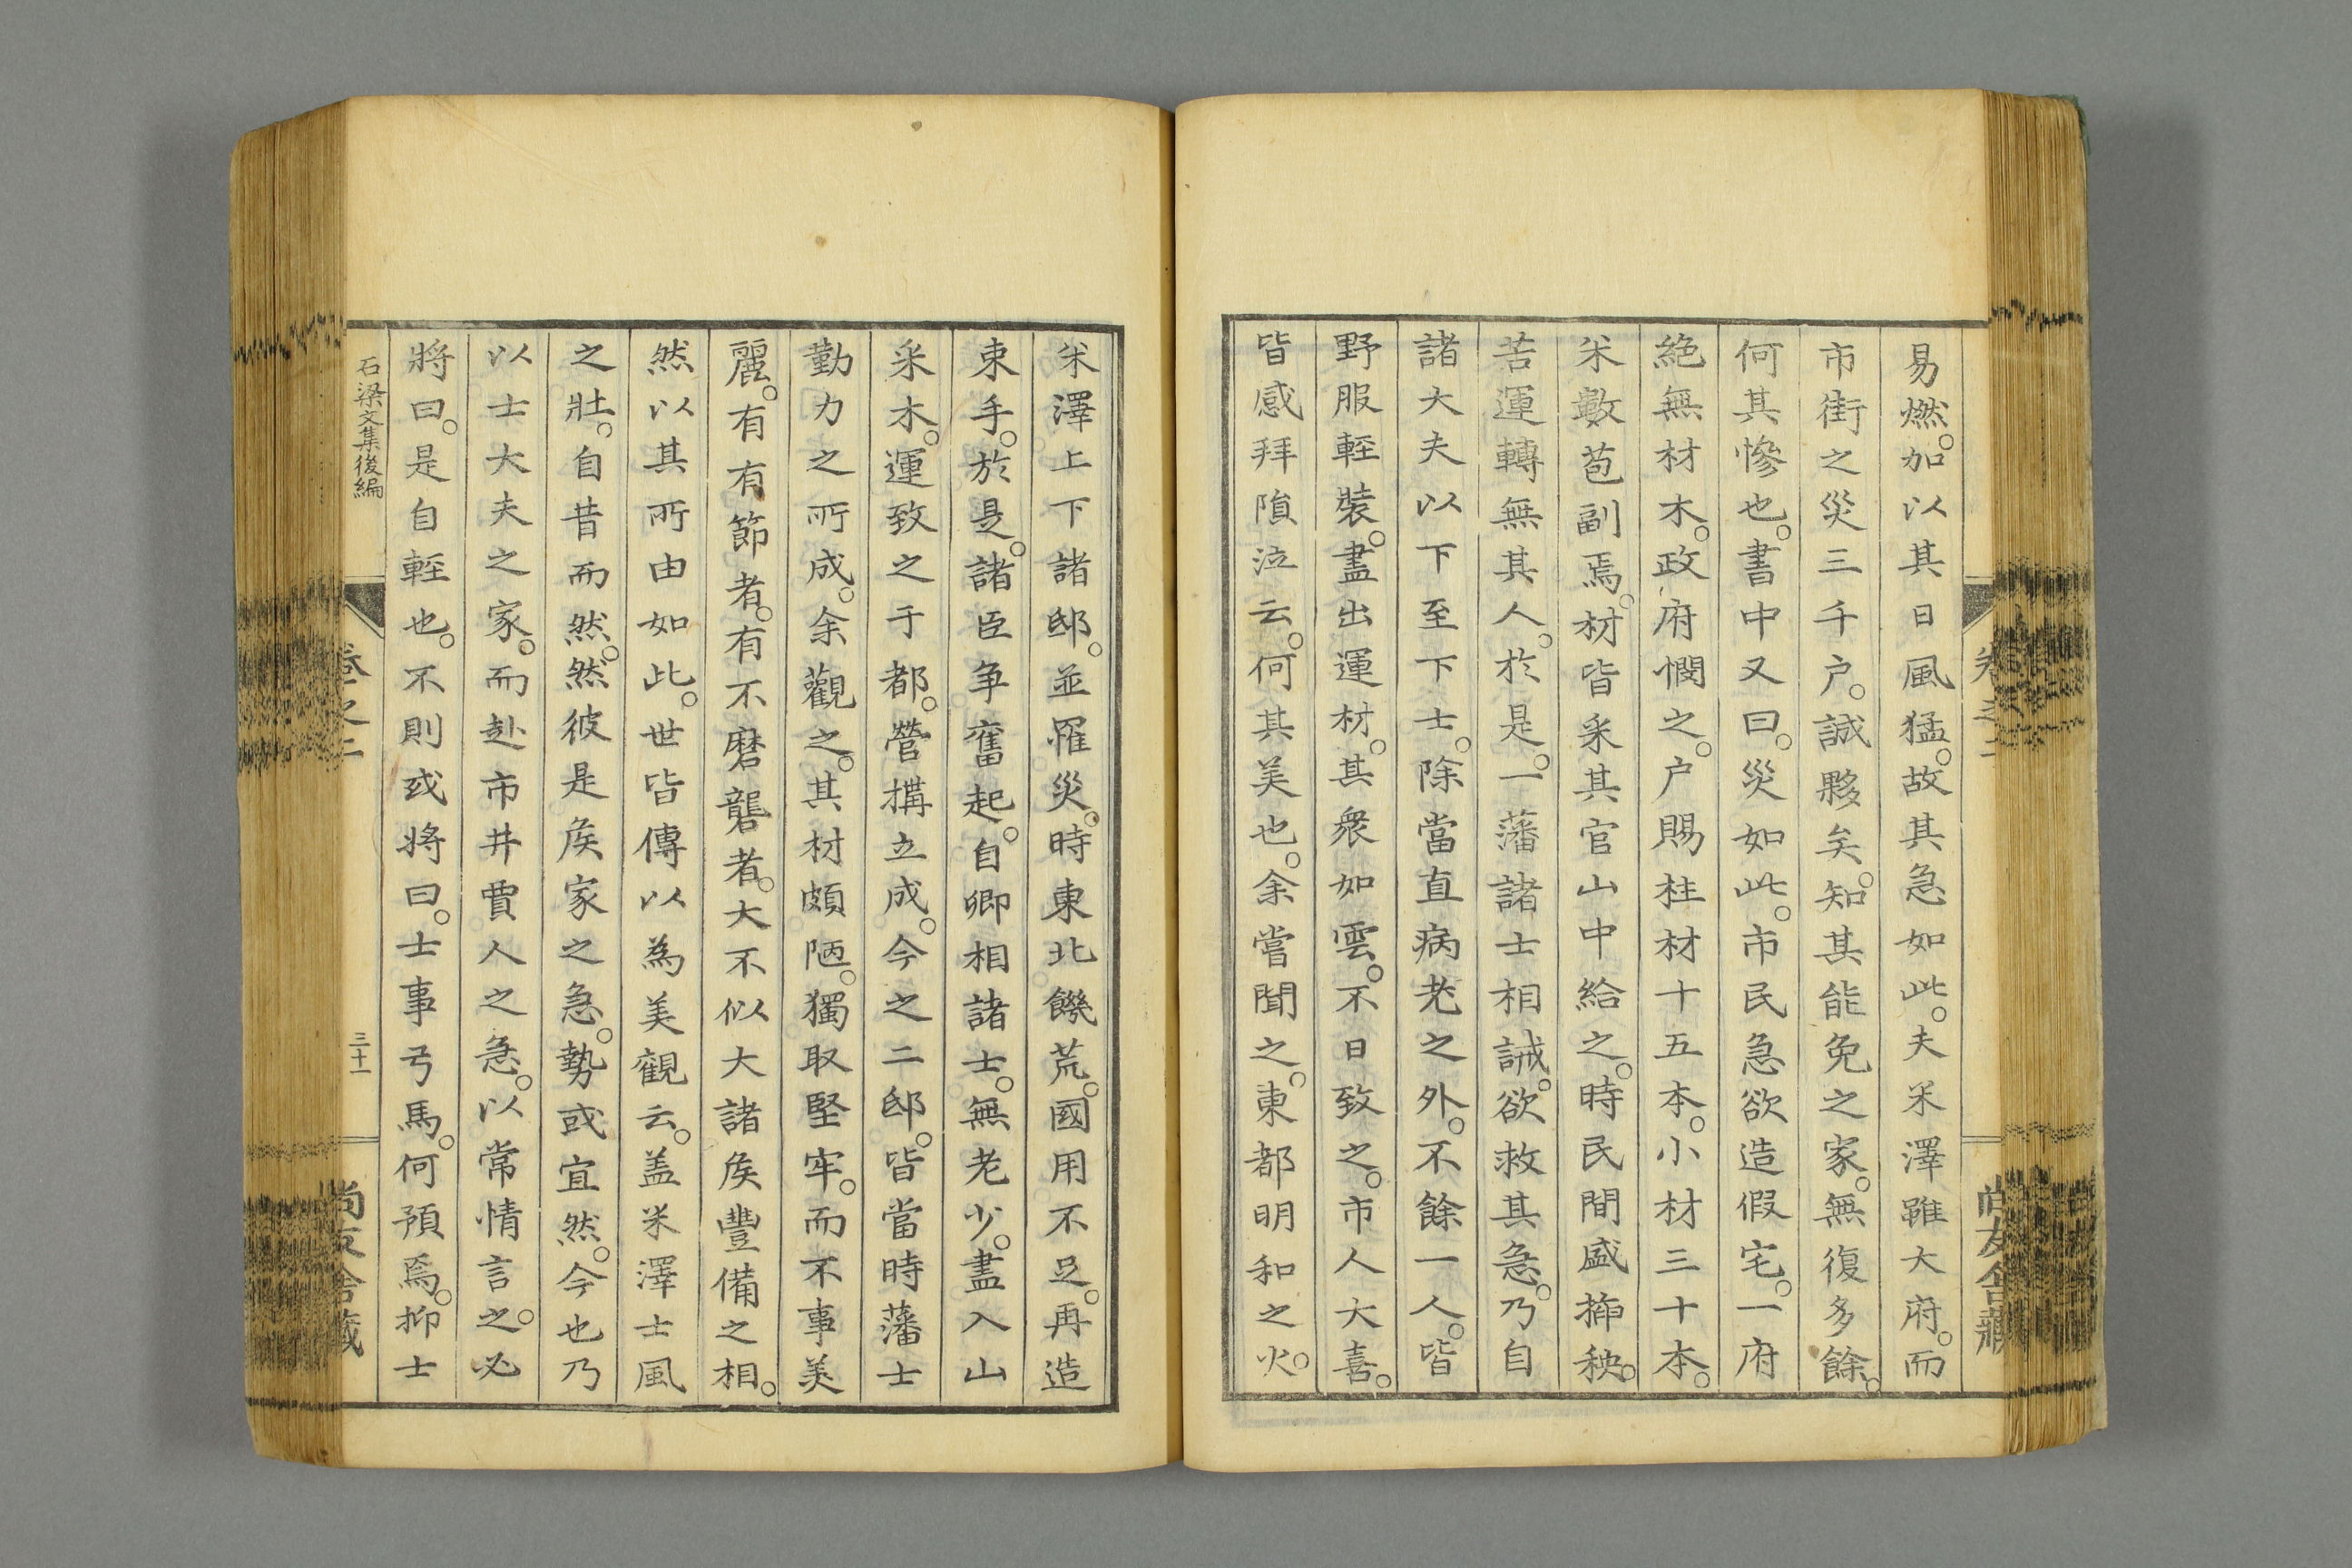 易燃。加以其日風猛。故其急如此。夫米澤雖大府。而
市街之災三千户。誠夥矣。知其能免之家。無復多餘。
何其慘也。書中又曰。災如此。市民急欲造假宅。一府
絶無材木。政府憫之。户賜柱材十五本。小材三十本。
米數苞副焉。材皆采其官山中給之。時民間盛插秧。
苦運轉無其人。於是。一藩諸士相誡。欲救其急。乃自
諸大夫以下至下士。除當直病老之外。不餘一人。皆
野服輕裝。盡出運材。其衆如雲。不日致之。市人大喜。
皆感拜隕泣云。何其美也。余嘗聞之。東都明和之火。
米澤上下諸邸。並罹災。時東北饑荒。國用不足。再造
束手。於是。諸臣争奮起。自卿相諸士。無老少。盡入山
采木。運致之于都。營搆立成。今之二邸。皆當時藩士
勤力之所成。余觀之。其材頗陋。獨取堅牢。而不事美
麗。有有節者。有不磨礱者。大不似大諸侯豐備之相。
然以其所由如此。世皆傳以為美觀云。盖米澤士風
之壯。自昔而然。然彼是侯家之急。勢或宜然。今也乃
以士大夫之家。而赴市井賈人之急。以常情言之。必
將曰。是自輕也。不則或将曰。士事弓馬。何預焉。抑士
石梁文集後編
卷之二
三十一
尚友舍藏